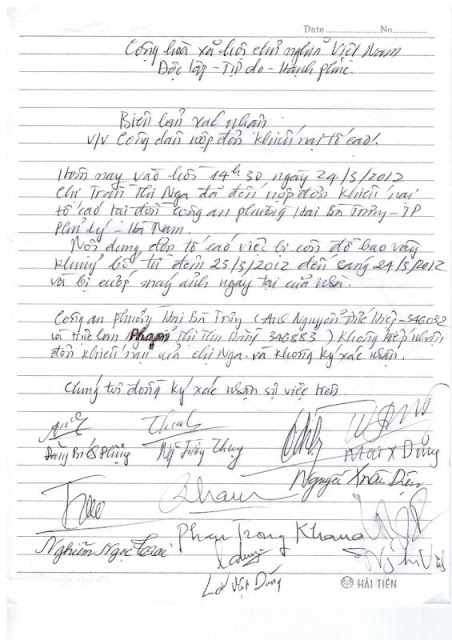 Date No.
Cộng hòa xã hội chủ nghĩa Việt Nam
Độc lập - Tự do - Hạnh phúc.
Biên bản xác nhận
V/v Công dân nộp đơn khiếu nại tố cáo.
Hôm nay vào hồi 14h30 ngày 24/3/2012
Chị Trần Thị Nga đã đến nộp đơn khiếu nại
tố cáo tại đồn công an phường Hai Bà Trưng - TP
Phủ Lý - Hà Nam.
Nội dung đơn tố cáo việc bị côn đồ bao vây
khủng bố từ đêm 23/3/2012 đến sáng 24/3/2012
và bị cướp máy ảnh ngay tại cửa nhà.
Công an phường Hai Bà Trưng (Anh Nguyễn 346032
và Phạm Thị Thu Hằng 346583) không tiếp nhận
đơn khiếu nại của chị Nga và không ký xác nhận.
Chúng tôi đồng ký xác nhận sự việc trên
Mai X Dũng
Nguyễn Xuân Diện
Phan Trọng Khang
Lã Việt Dũng
HẢI TIẾN